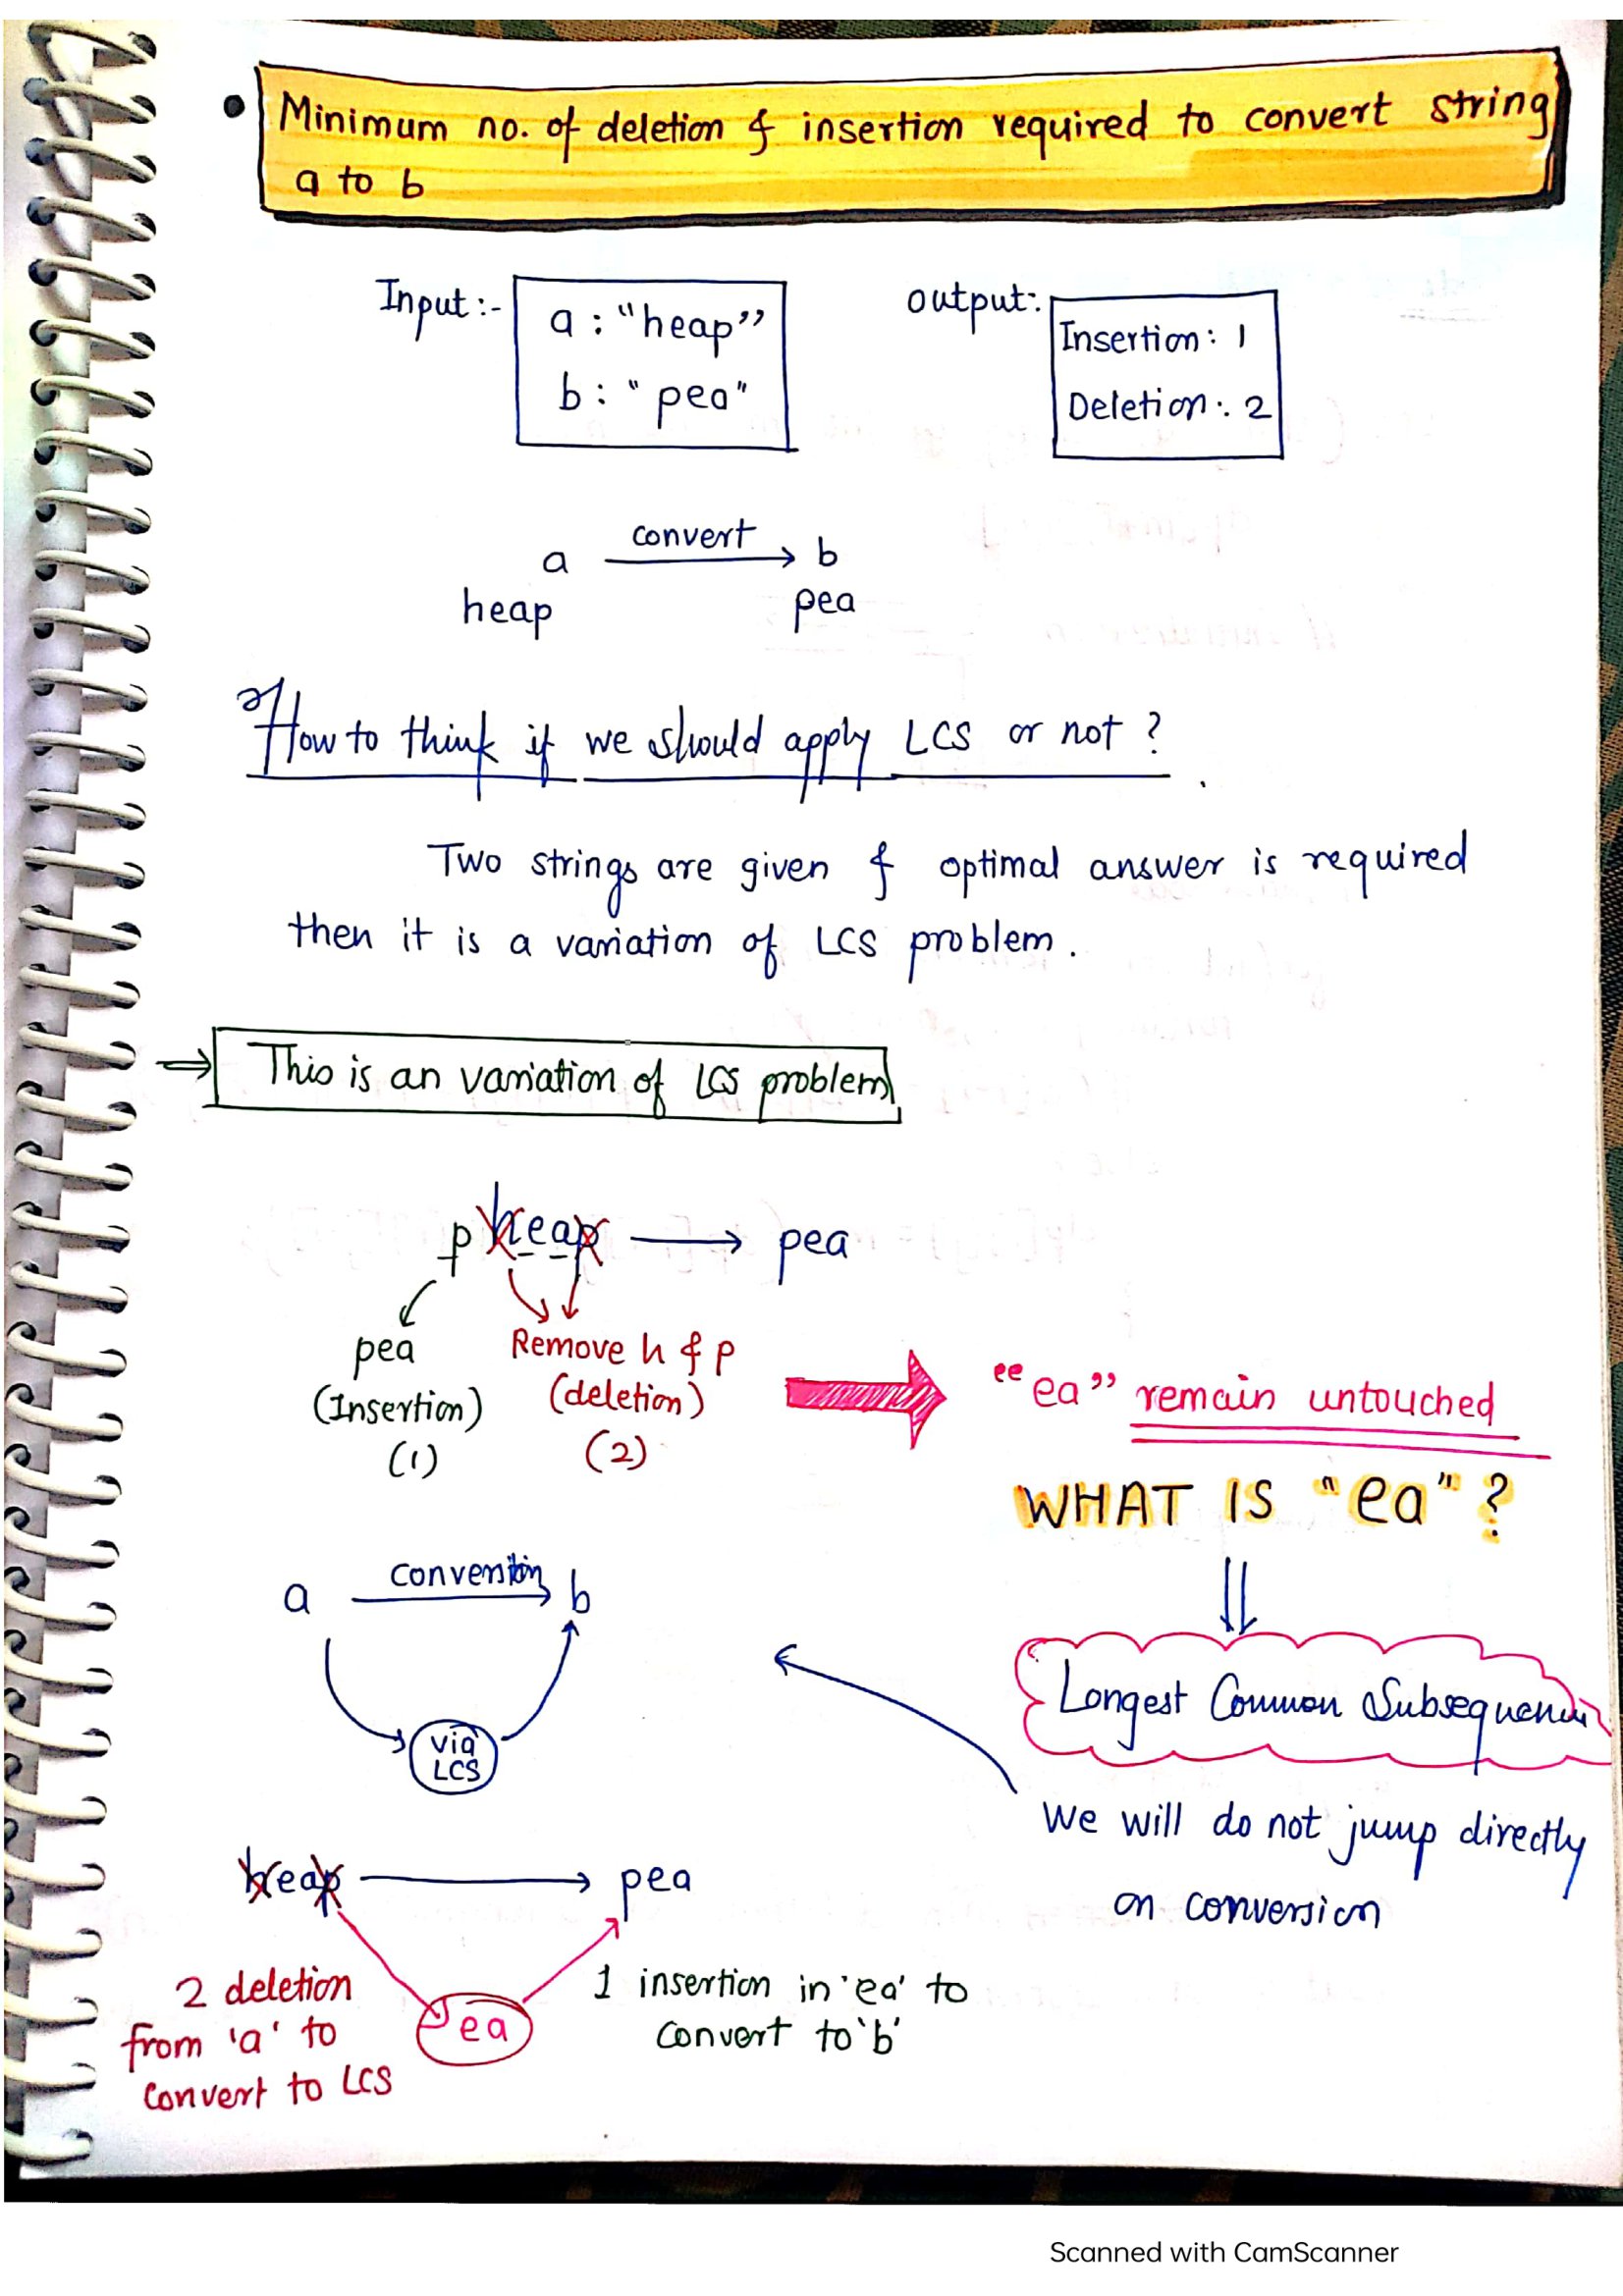 • Minimum no. of deletion & insertion required to convert string
a to b
Input :-
a : "heap"
b : "pea"
output:
Insertion: 1
Deletion: 2
a convert b
heap pea
How to think if we should apply LCS or not ?
Two strings are given & optimal answer is required
then it is a variation of LCS problem.
⇒ This is an variation of LCS problem
p heap → pea
pea
(Insertion)
(1)
Remove h & p
(deletion)
(2)
"ea" remain untouched
WHAT IS "ea" ?
Longest Common Subsequence
We will do not jump directly
on conversion
a conversion b
via
LCS
heap → pea
2 deletion
from 'a' to
convert to LCS
ea
1 insertion in 'ea' to
convert to 'b'
Scanned with CamScanner